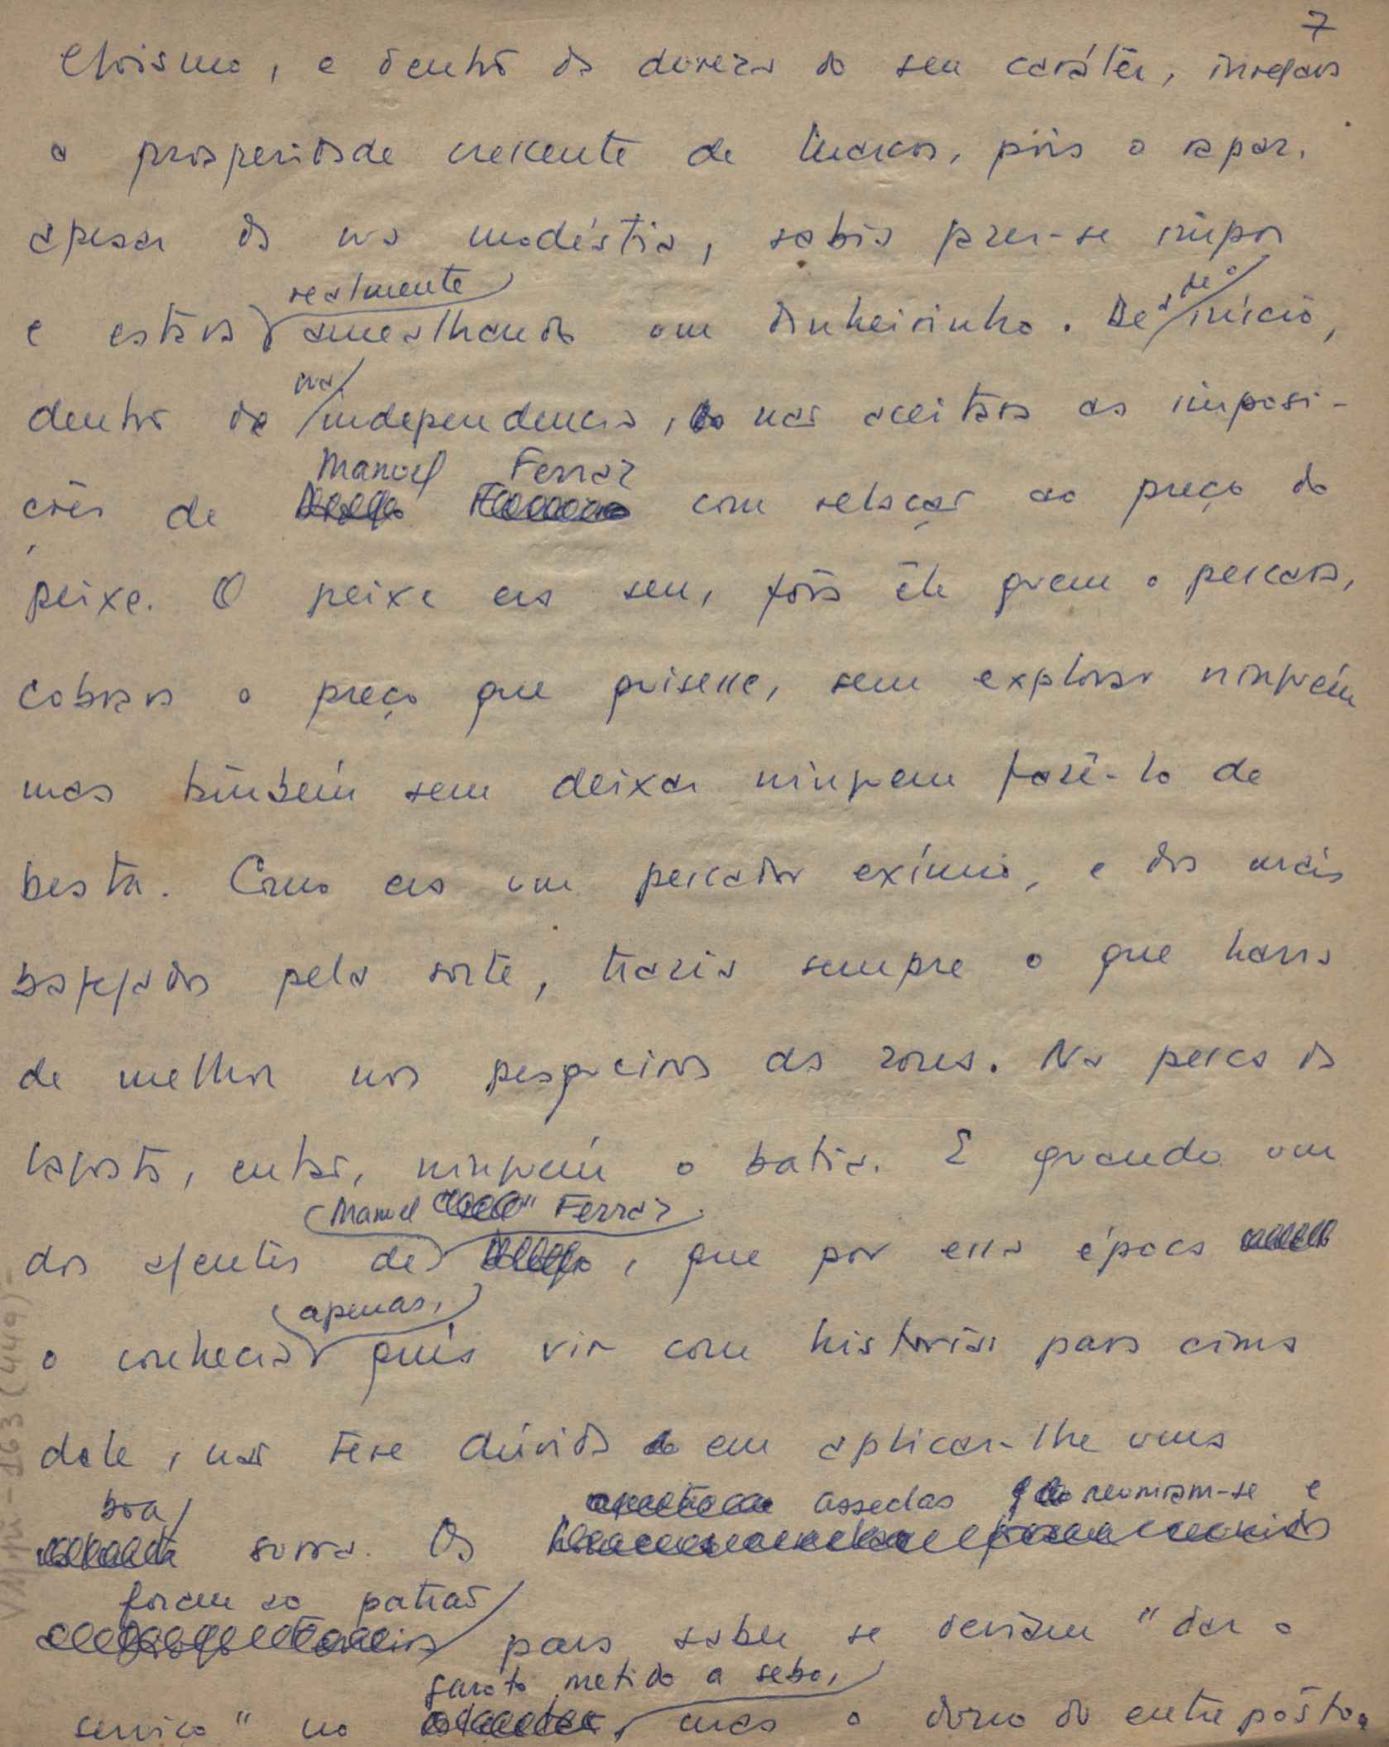 7
e dentro da dureza do seu caráter, invejava
a prosperidade crescente de Marcos, pois o rapaz,
apesar da sua modéstia, sabia fazer-se impor
realmente
e estava amealhando um dinheirinho. Desde o início,
sua
dentro da independencia, não aceitava as imposi-
Manoel Ferraz
ções de com relação ao preço do
peixe. O peixe era seu, fôra êle quem o pescara,
cobrava o preço que quisesse, sem explorar ninguém
mas também sem deixar ninguem fazê-lo de
besta. Como era um pescador exímio, e dos mais
bafejados pela sorte, trazia sempre o que havia
de melhor nos pesqueiros da zona. Na pesca da
lagosta, então, ninguém o batia. E quando um
Manoel Ferraz
dos agentes de , que por essa época
apenas,
o conhecia quis vir com historias para cima
dele, não teve dúvida em aplicar-lhe uma
boa asseclas reuniram-se e
surra. Os
foram ao patrão
para saber se deviam "dar o
garôto metido a sebo,
serviço" no mas o dono do entrepôsto,
VM/pi-163(449)-